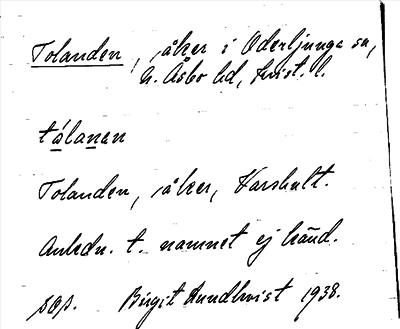 Tolanden, åker i Oderljunga sn,
N. Åsbo hd, Krist. l.
tålanan
Tolanden, åker, Varshult.
Anledn. t. namnet ej känd.
sop. Birgit Kundkvist 1938.